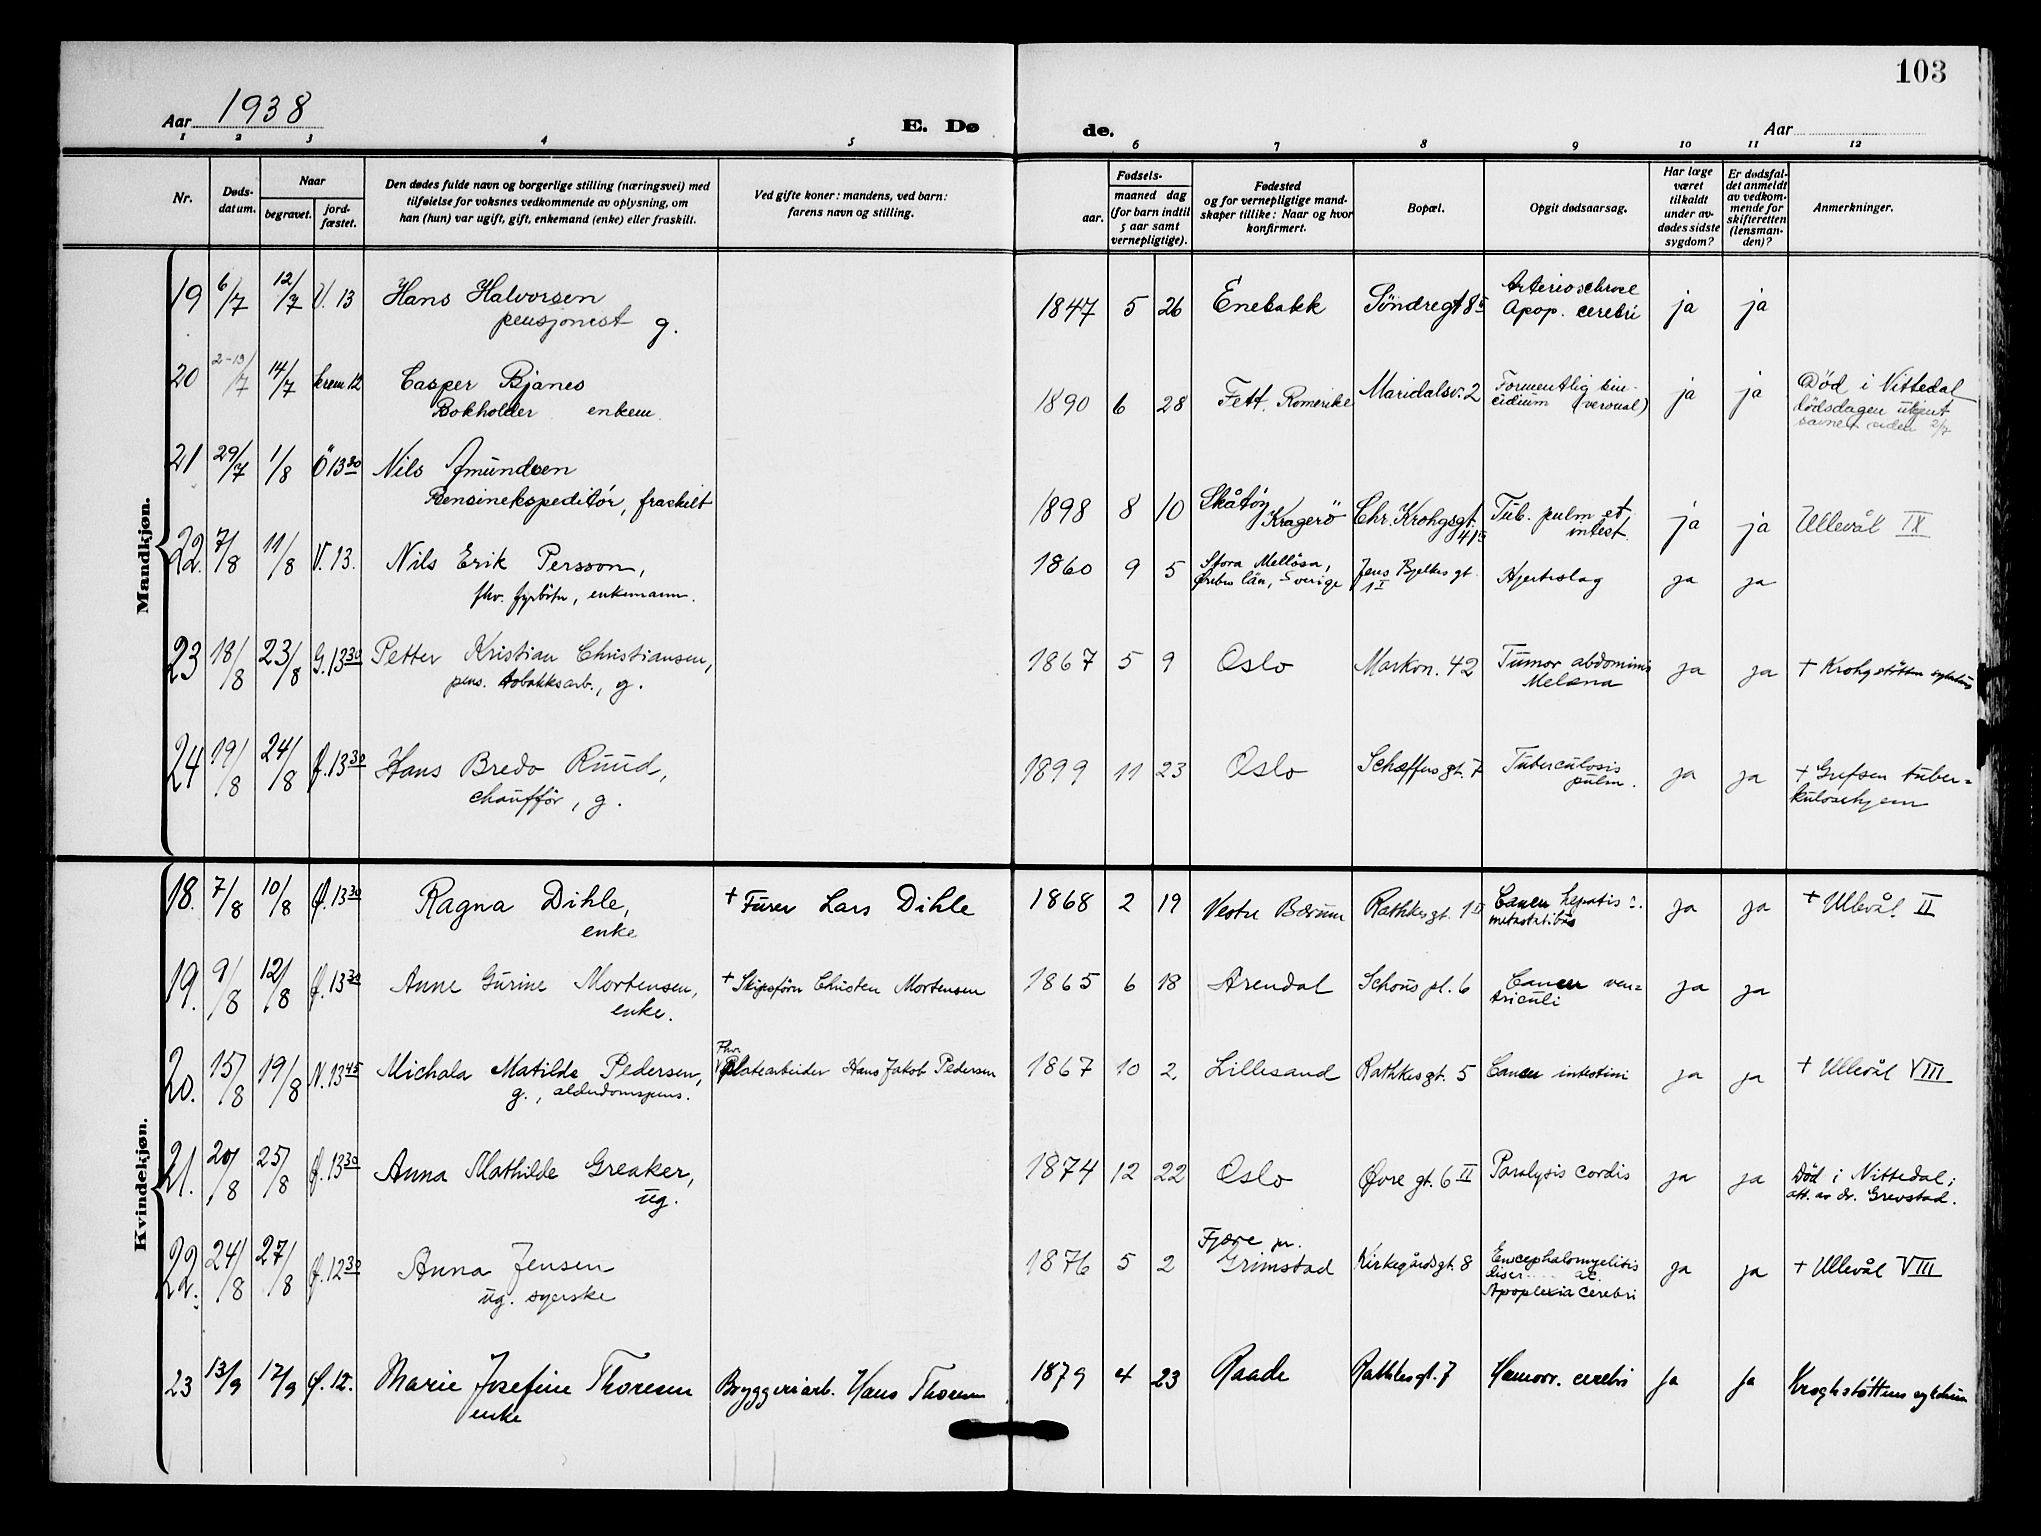 103
Aar 1938
E. Dø
de.
Aar
1 2 3 4 5 6 7 8 9 10 11 12
Nr.
Døds-
datum.
Naar
begravet.
jord-
fæstet.
Den dødes fulde navn og borgerlige stilling (næringsvei) med
tilføielse for voksnes vedkommende av oplysning, om
han (hun) var ugift, gift, enkemand (enke) eller fraskilt.
Ved gifte koner: mandens, ved barn:
farens navn og stilling.
Fødsels-
aar.
maaned dag
(for barn indtil
5 aar samt
vernepligtige).
Fødested
og for vernepligtige mand-
skaper tillike: Naar og hvor
konfirmert.
Bopæl.
Opgit dødsaarsag.
Har læge
været
tilkaldt
under av-
dødes sidste
sygdom?
Er dødsfal-
det anmeldt
av vedkom-
mende for
skifteretten
(lensman-
den)?
Anmerkninger.
Mandkjøn.
19 6/7 12/7 V. 13 Hans Halvorsen
pensjonist g.
1847 5 26 Enebakk Söndregt 8 Arteriosclerose
Apop. cerebri ja ja
20 2-13/7 14/7 krem 12 Casper Bjanes
Bokholder enkem.
1890 6 28 Fett. Romerike Maridalsv. 2 Formentlig sui-
cidium (veronal) ja ja Död i Nittedal
dödsdagen ukjent
savnet siden 2/7
21 29/7 1/8 Ö 13 30 Nils Amundsen
Bensinekspeditör, fraskilt
1898 8 10 Skåtöy
Kragerö Chr. Krohgsgt.
41 Tub. pulm et
intest. ja ja Ullevål IX
22. 7/8 11/8 V. 13. Nils Erik Persson,
fhv. fyrböter, enkemann.
1860 9 5 Stora Mellösa,
Örebro län, Sverige Jens Bjelkes gt.
1 I Hjerteslag ja ja
23 18/8 23/8 G. 13 30 Petter Kristian Christiansen,
pens. tobakksarb., g.
1867 5 9 Oslo Markvn. 42 Tumor abdominis
Melæna ja ja + Krohgstötten sykehus
24 19/8 24/8 Ø. 13 30 Hans Bredo Ruud,
chauffør, g.
1899 11 23 Oslo Schæffers gt. 7 Tuberculosis
pulm. ja ja + Grefsen tuber=
kulosehjem
Kvindekjøn.
18. 7/8 10/8 Ø. 13 30 Ragna Dihle,
enke
+ Furer Lars Dihle
1868 2 19 Vestre Bærum Rathkes gt. 1 II Cancer hepatis
metastatibus ja ja + Ullevål II
19. 9/8 12/8 Ø. 13 30 Anne Gurine Mortensen,
enke.
+ Skipsförer Christen Mortensen
1865 6 18 Arendal Schous pl. 6 Cancer ven=
triculi ja ja
20. 15/8 19/8 N. 13 45 Michala Matilde Pedersen,
g., alderdomspens.
Fhv.
platearbeider Hans Jakob Pedersen
1867 10 2 Lillesand Rathkes gt. 5 Cancer intestini ja ja + Ullevål VIII
21. 20/8 25/8 Ø. 13 30 Anna Mathilde Greaker,
ug.
1874 12 22 Oslo Øvre gt. 6 II Paralysis cordis ja ja Död i Nittedal;
att. av dr. Grevstad.
22. 24/8 27/8 Ø. 12 30 Anna Jensen
ug. syerske
1876 5 2 Fjære pr.
Grimstad Kirkegårdsgt. 8 Encephalomyelitis
ac.
Apoplexia cerebri ja ja + Ullevål VIII
23 13/9 17/9 Ø. 12. Marie Josefine Thoresen
enke
Bryggeriarb. Hans Thoresen
1879 4 23 Raade Rathkes gt. 7 Hæmorr. cerebri ja ja Kroghstöttens sykehus